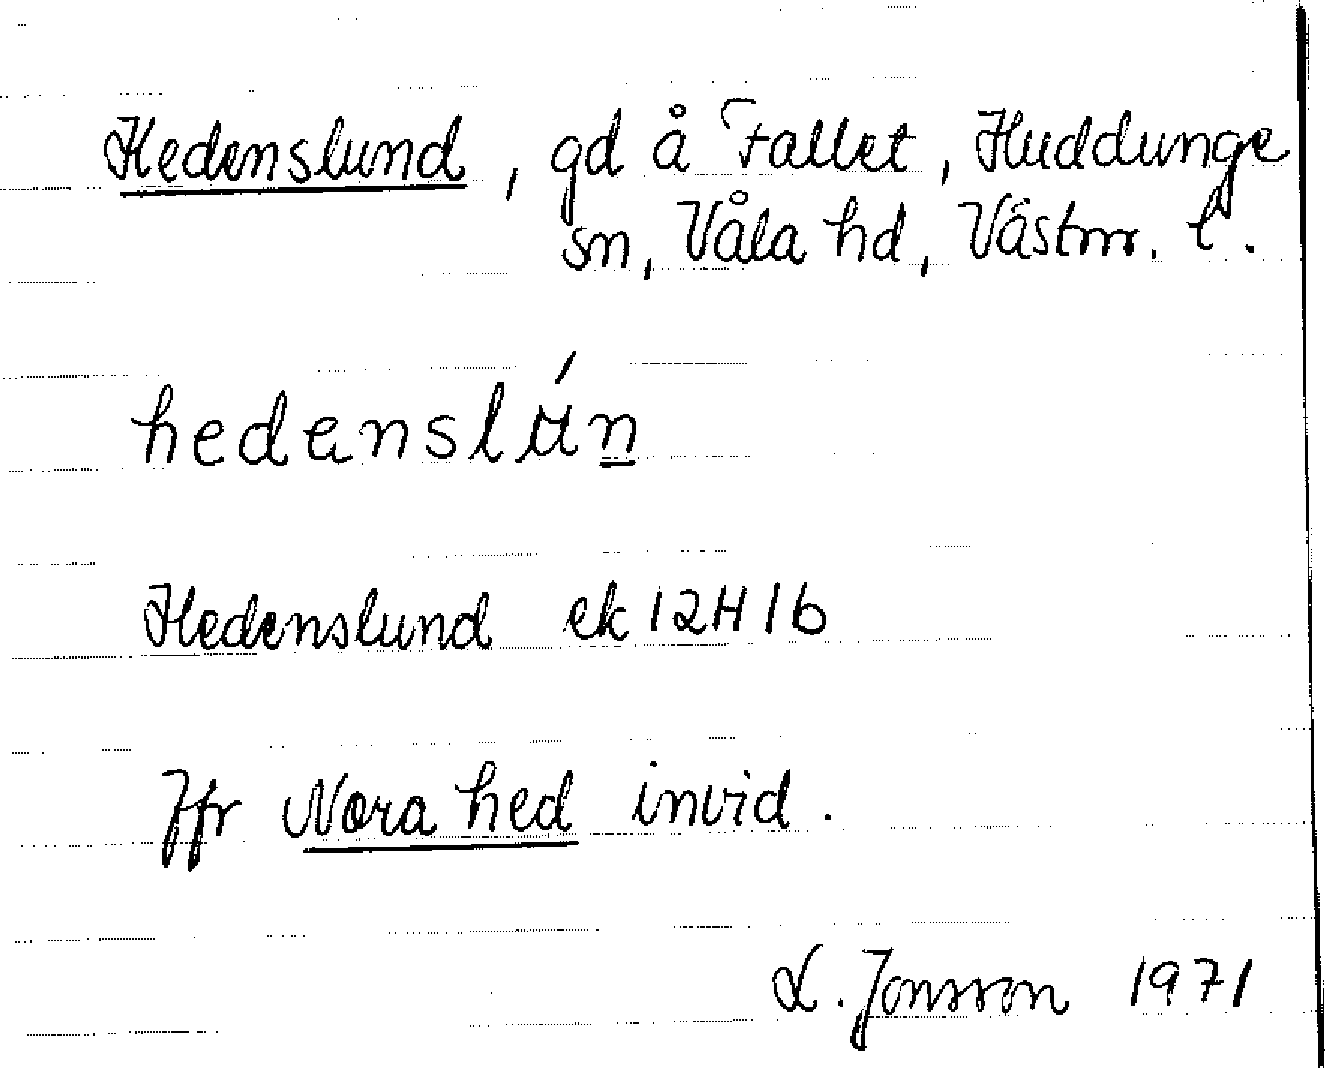 Hedenslund, gd å Fallet, Huddunge
sn, Våla hd, Västm. l.
hedenslún
Hedenslund ek 12H 1b
Jfr Nora hed invid.
L. Jonsson 1971